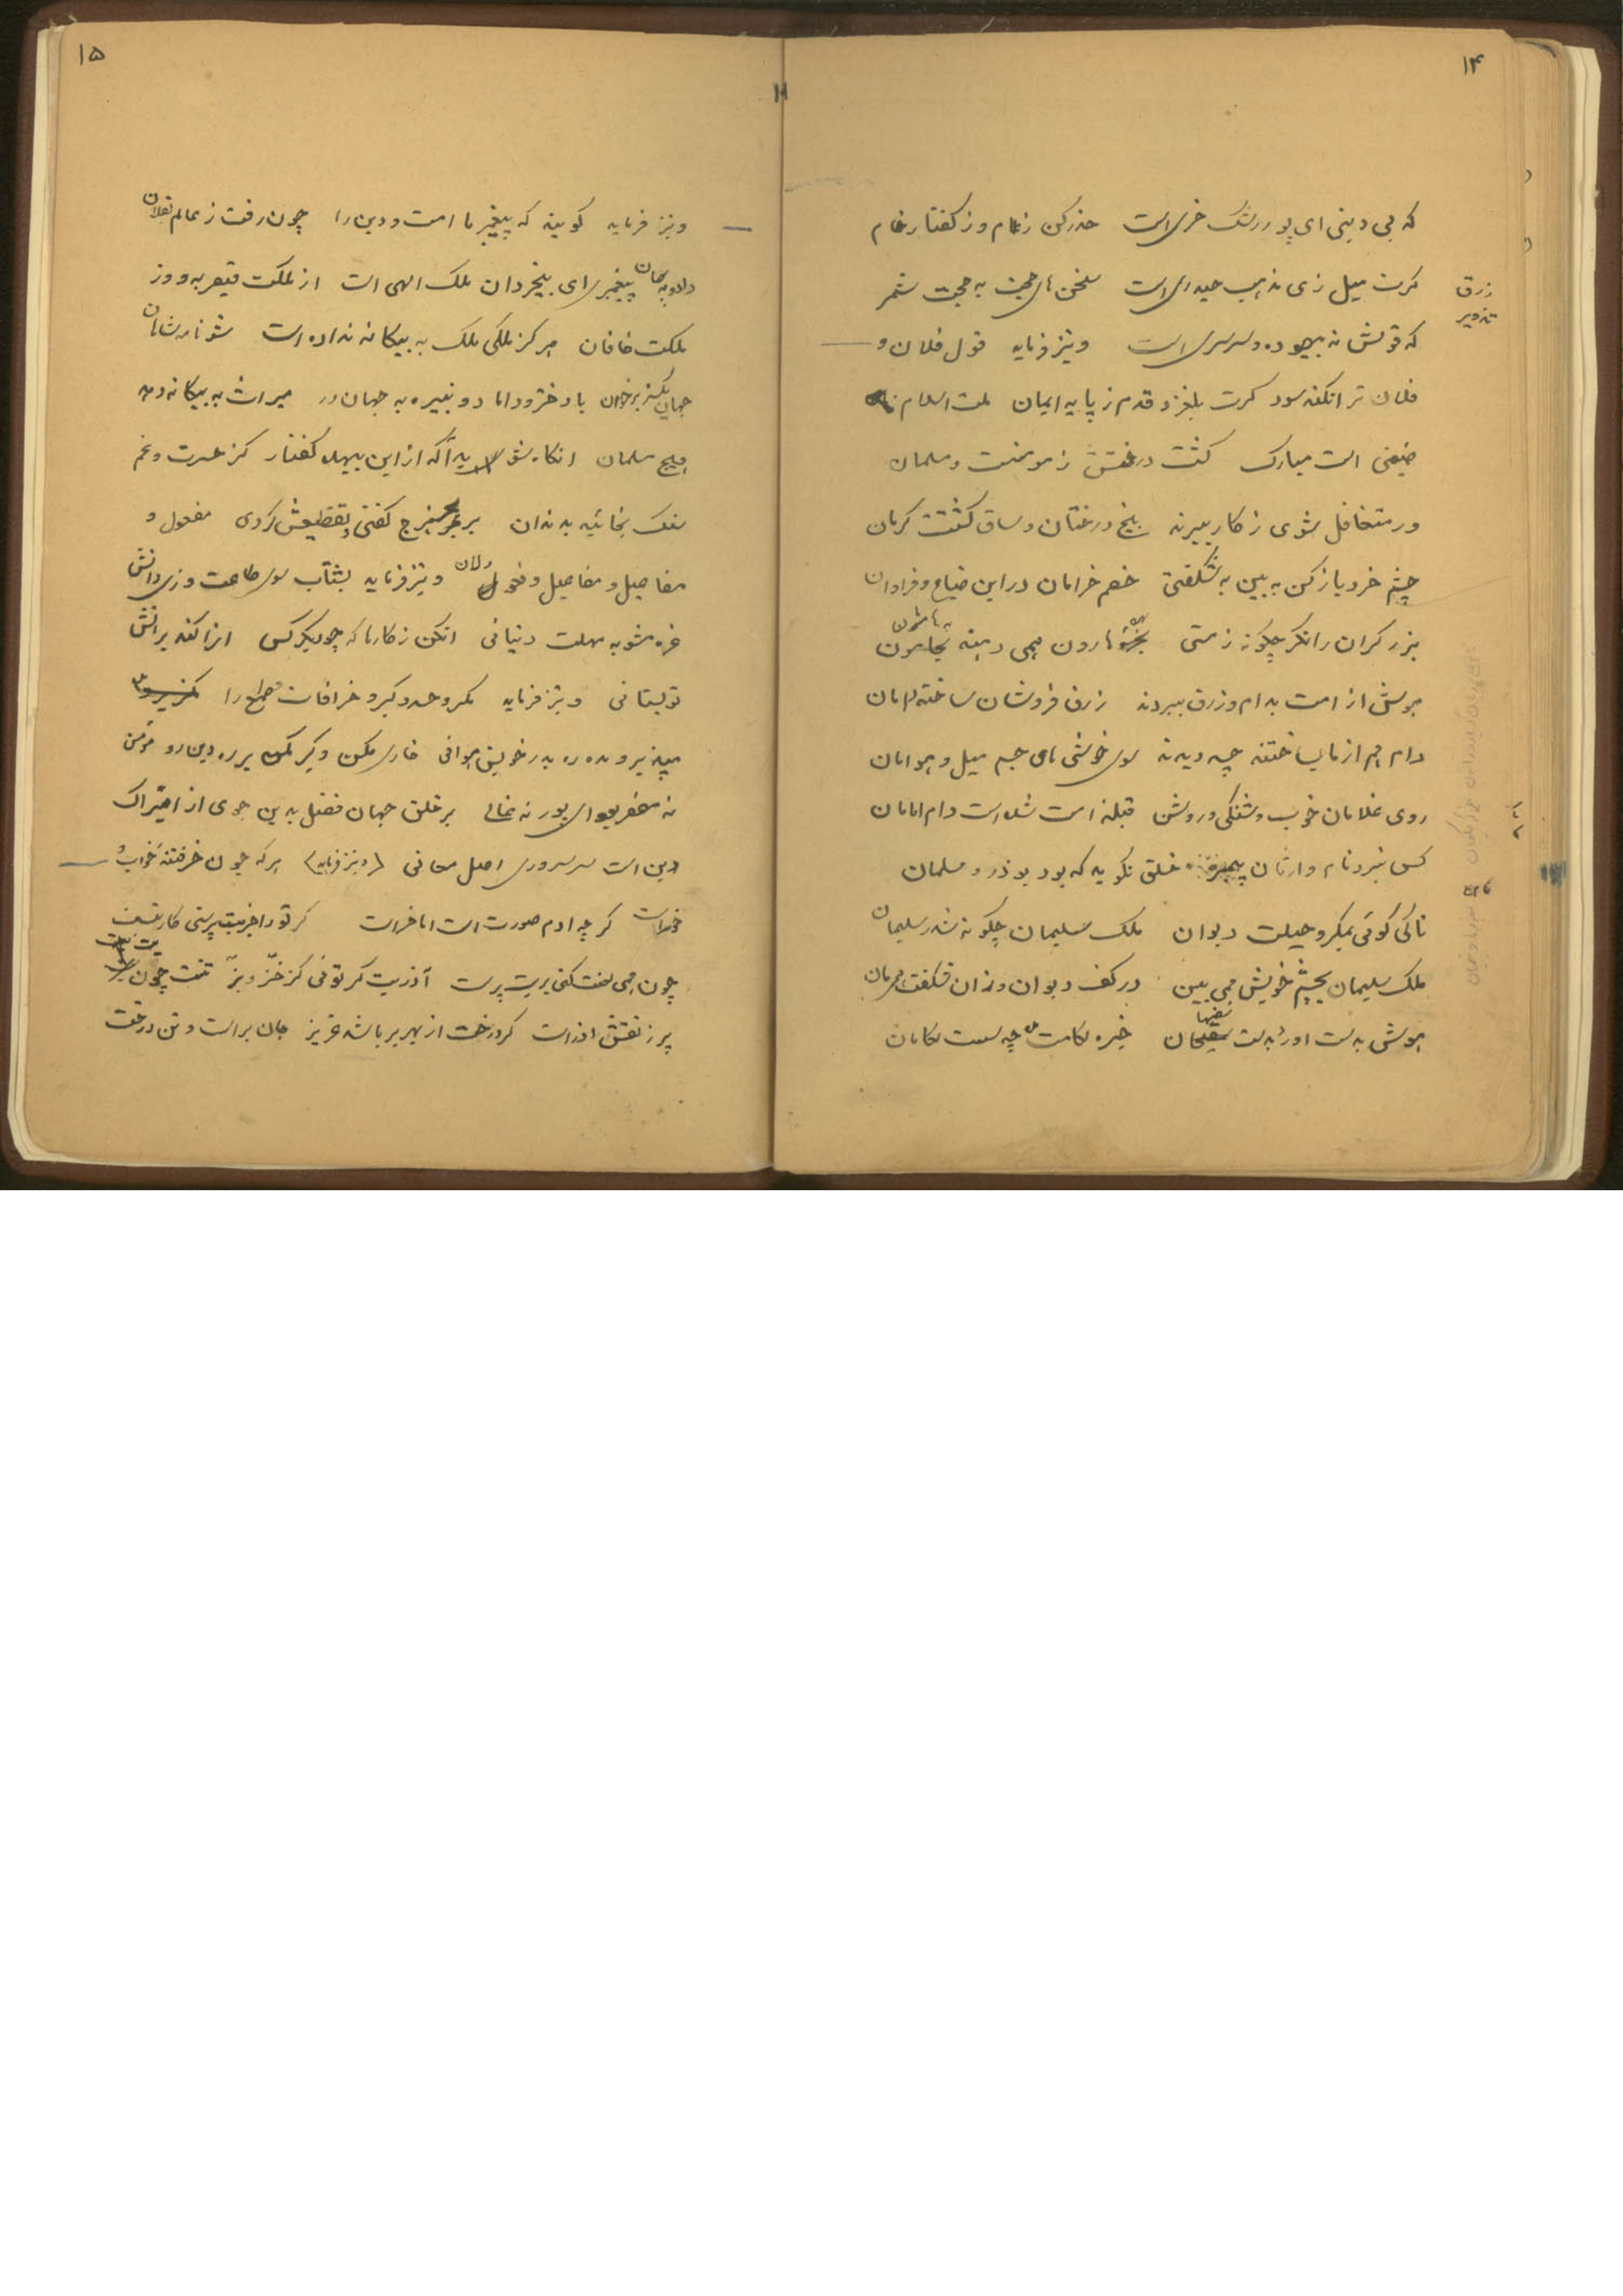 ۱۴
که بی دینی ای پور رشک خری است حذر کن ز عام و ز گفتار خام
گرت میل زی مذهب حیدری است سخن های حجت به حجت شمر
که قولش نه بیهوده و سرسری است و نیز فرماید قول فلان و
فلان ترا نکند سود گرت بلغزد قدم ز پایه ایمان ملت اسلام
ضیعتی است مبارک کشت درختش ز مومنست و مسلمان
ور متغافل شوی ز کار ببرند بیخ درختان و ساق کشتت کرمان
چشم خرد باز کن به بین به شگفتی خصم خرامان در این ضیاع و فراوان
برزگران را نگر چگونه ز مستی هارون همی دهند بهامون
هوش از امت بدام و زرق ببردند زرق فروشان ساخته دامان
دام هم از ما بساختند چو دیدند سوی خوشی های جسم میل و هوامان
روی غلامان خوب و سنگی و روشن قبله است شده است دام امامان
کس نبرد نام وارثان پیمبر خلق نگوید که بود بوذر و سلمان
تا کی گوئی بمکر و حیلت دیوان ملک سلیمان چگونه شد ز سلیمان
ملک سلیمان بچشم خویش همی بین در کف دیوان و زان شگفت مرمان
هوش به است او به سفیهان خیره
زرق
تزویر
۱۵
و نیز فرماید گویند که پیغمبر ما امت و دین را چون رفت ز عالم بفلان
داد و به بهمان پیغمبری ای بیخردان ملک الهی است از ملکت قیصر به و وز
ملکت خاقان هرگز ملکی ملک به بیگانه نداده است شو نامه شاهان
جهان یکسر برخوان با دختر و داماد و نبیره به جهان در میراث به بیگانه دهد
هیچ مسلمان آنگاه شو آگه از این بیهده گفتار کز حسرت و غم
سنگ بخائید به دندان بر بحر هزج گفتی و تقطیعش کردی مفعول و
مفاعیل و مفاعیل و فعولان و نیز فرماید بشتاب سوی طاعت و زی دانش
غره مشو به مهلت دنیائی آنکن ز کارها که چو دیگر کس آنرا کند برانش
تو بستانی و نیز فرماید مکر و حسد و کبر و خرافات و طمع را
میپذیر و مده ره بدر خویش هوانی خاری مکن و گیر مکن بر ره دین رو مؤمن
نه مقصر بود ای پور نه غالی بر خلق جهان فضل بدین جوی از ایراک
دین است سر سروری و اصل معانی (و نیز فرماید) هر که چون خر فتنه خواب و
خور است گرچه آدم صورت است اما خر است گر تو را جز بت پرستی کار نیست
چون همی لعنت کنی بر بت پرست آذر بت گر توئی کز خز و بز تنت چون
پر ز نقش آذر است گر درخت از بهر بر باشد عزیز جان بر است و تن درخت